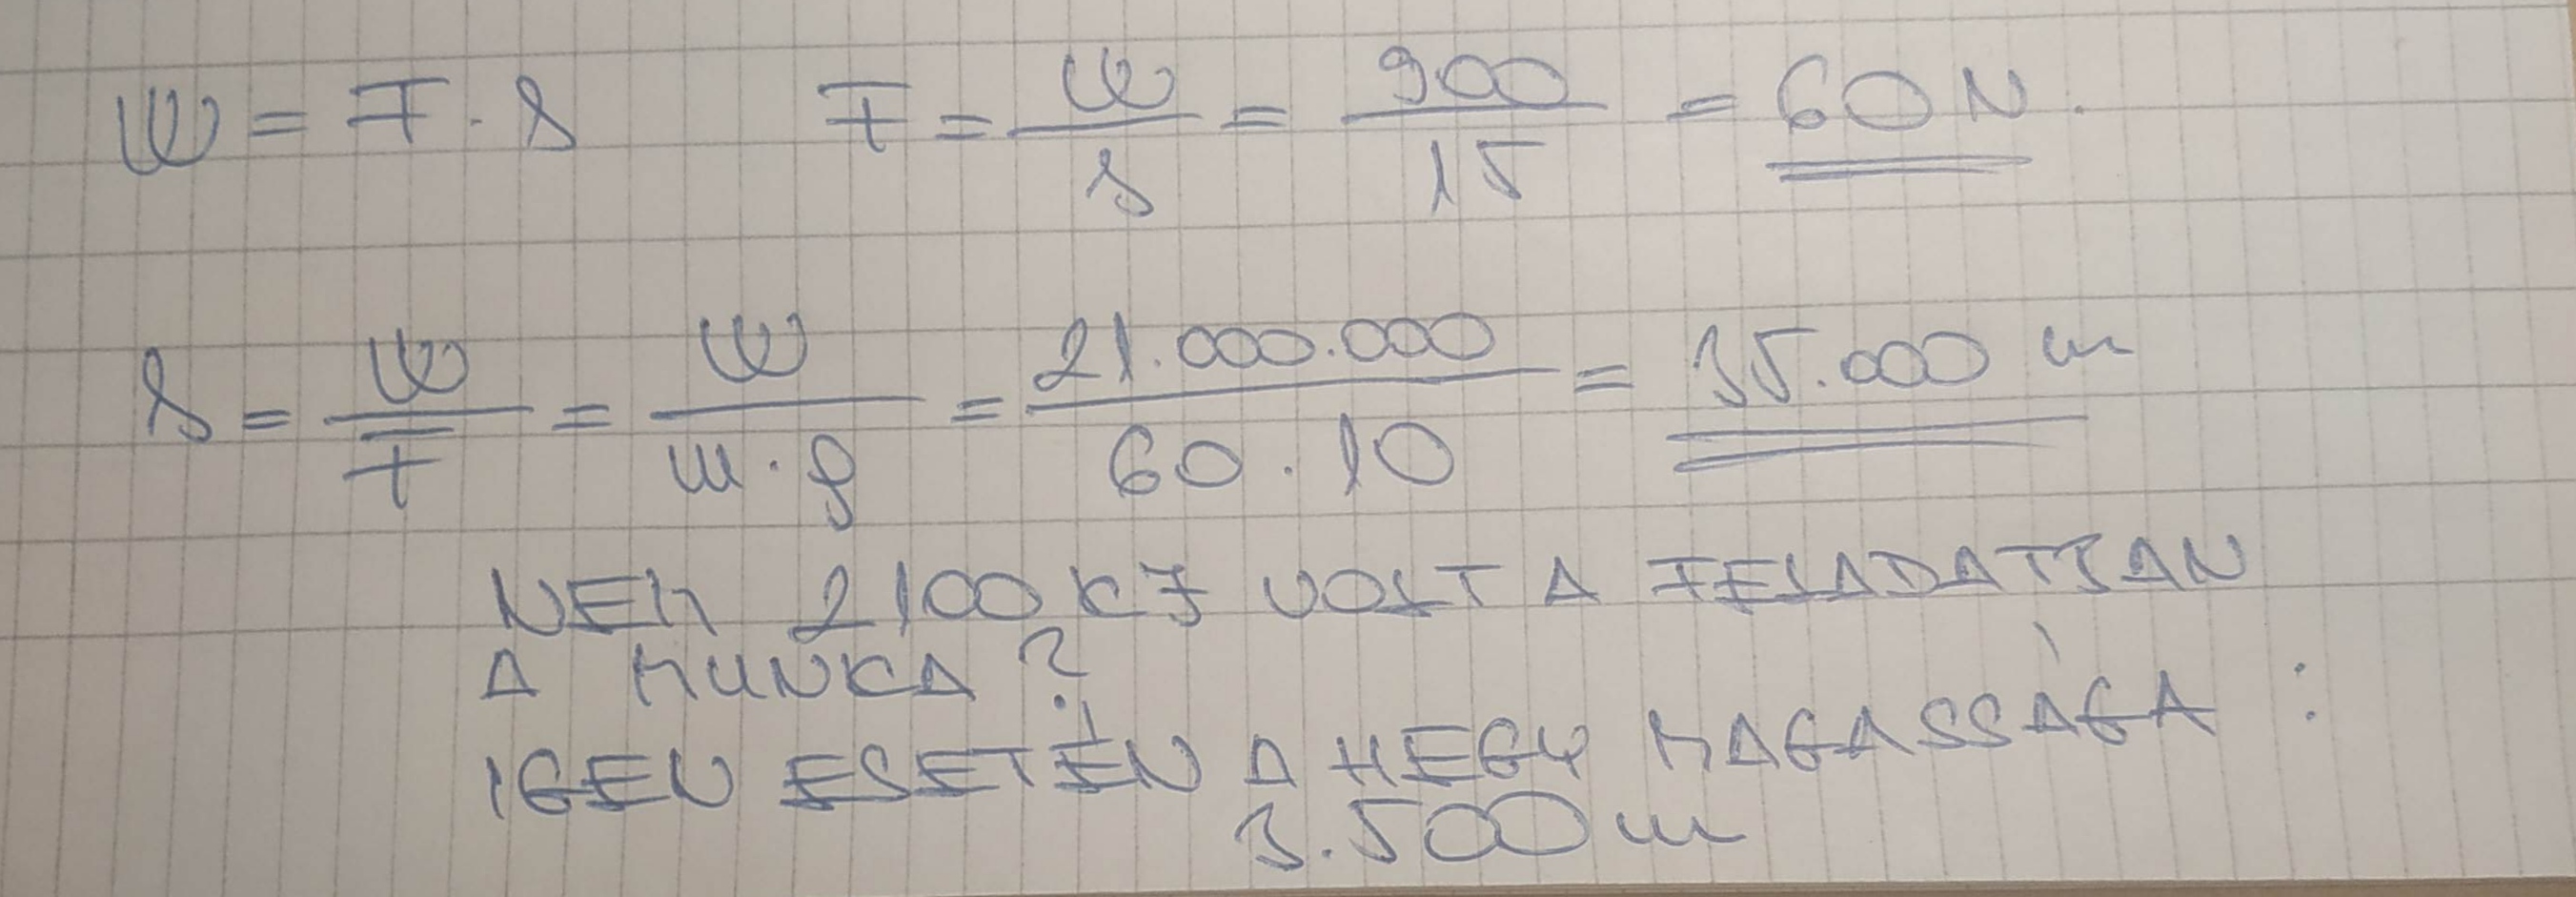 W = F · s F = W/s = 900/15 = 60 N.
s = W/F = W/m·g = 21.000.000/60·10 = 35.000 m
NEM 2100 KJ VOLT A FELADATBAN
A MUNKA?
IGEN ESETÉN A HEGY MAGASSÁGA :
3.500 m